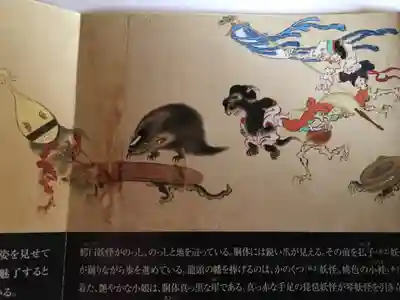 姿を見せて
魅了すると
いる。
鰐口妖怪がのっし、のっしと地を這っている。胴体には鋭い爪が見える。その前を払子
妖怪
が踊りながら歩を進めている。龍頭の幡を捧げるのは、かのくつ
妖怪。桃色の小袿
着た、艶やかな小娘は、胴体真っ黒な犀である。真っ赤な手足の琵琶妖怪が琴妖怪を引き